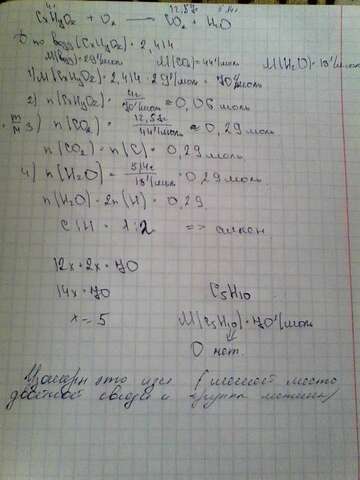 4г 12,57г 5,14г
CxHyOz + O2 → CO2 + H2O
D по возд (CxHyOz) = 2,414
M(возд) = 29 г/моль M(CO2) = 44 г/моль M(H2O) = 18 г/моль
1) M(CxHyOz) = 2,414 · 29 г/моль = 70 г/моль
2) n(CxHyOz) = 4г / 70 г/моль ≈ 0,06 моль
m/M 3) n(CO2) = 12,57г / 44 г/моль ≈ 0,29 моль
n(CO2) = n(C) = 0,29 моль
4) n(H2O) = 5,14г / 18 г/моль = 0,29 моль
n(H2O) = 2n(H) = 0,29
C : H = 1 : 2 => алкен
12x + 2x = 70
14x = 70 C5H10
x = 5 M(C5H10) = 70 г/моль
O нет.
Изомеры это или ( место
двойной связи и группа метина)